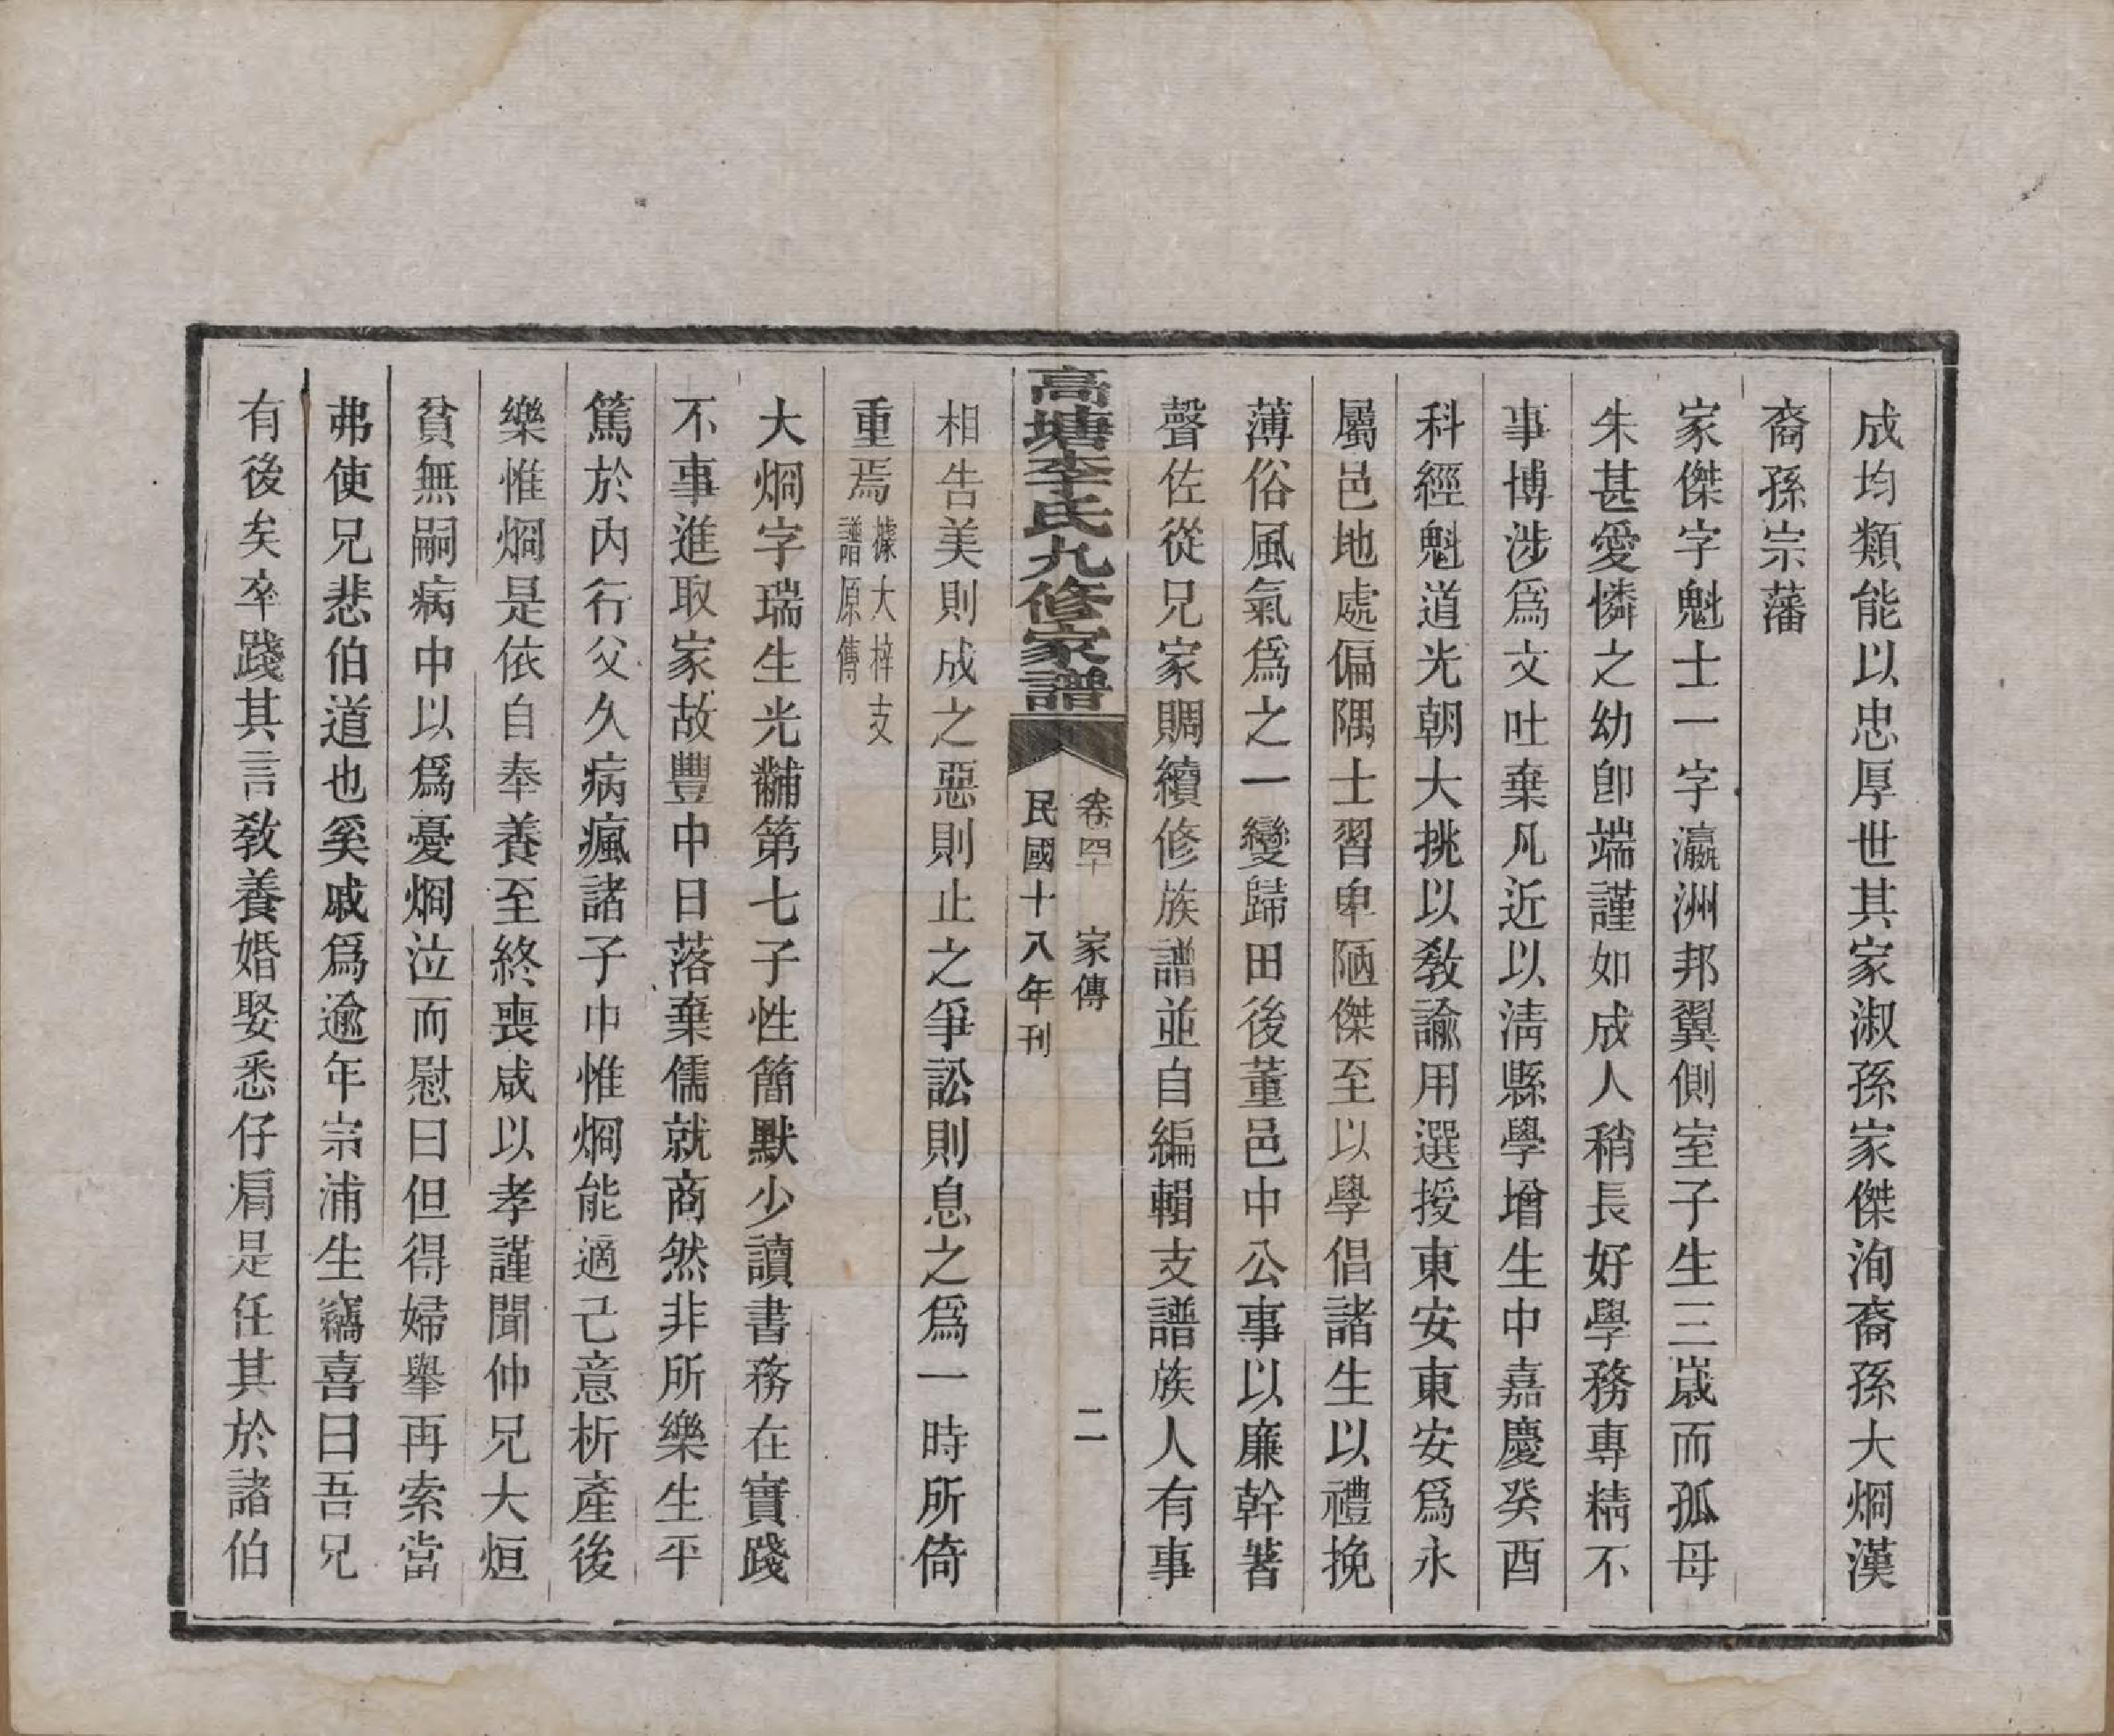 成均類能以忠厚世其家淑孫家傑洵裔孫大烱漢
裔孫宗藩
家傑字魁士一字瀛洲邦翼側室子生三歲而孤母
朱甚愛憐之幼卽端謹如成人稍長好學務專精不
事博涉爲文吐棄凡近以淸縣學增生中嘉慶癸酉
科經魁道光朝大挑以敎諭用選授東安東安爲永
屬邑地處偏隅士習卑陋傑至以學倡諸生以禮挽
薄俗風氣爲之一變歸田後董邑中公事以廉幹著
聲佐從兄家賙續修族譜並自編輯支譜族人有事
高塘李氏九修家譜
卷四 家傳
二
民國十八年刊
相告美則成之惡則止之爭訟則息之爲一時所倚
重焉據大梓支譜原傳
大烱字瑞生光黼第七子性簡默少讀書務在實踐
不事進取家故豐中日落棄儒就商然非所樂生平
篤於內行父久病瘋諸子中惟烱能適己意析產後
樂惟烱是依自奉養至終喪咸以孝謹聞仲兄大烜
貧無嗣病中以爲憂烱泣而慰曰但得婦舉再索當
弗使兄悲伯道也奚戚爲逾年宗浦生竊喜曰吾兄
有後矣卒踐其言敎養婚娶悉仔肩是任其於諸伯